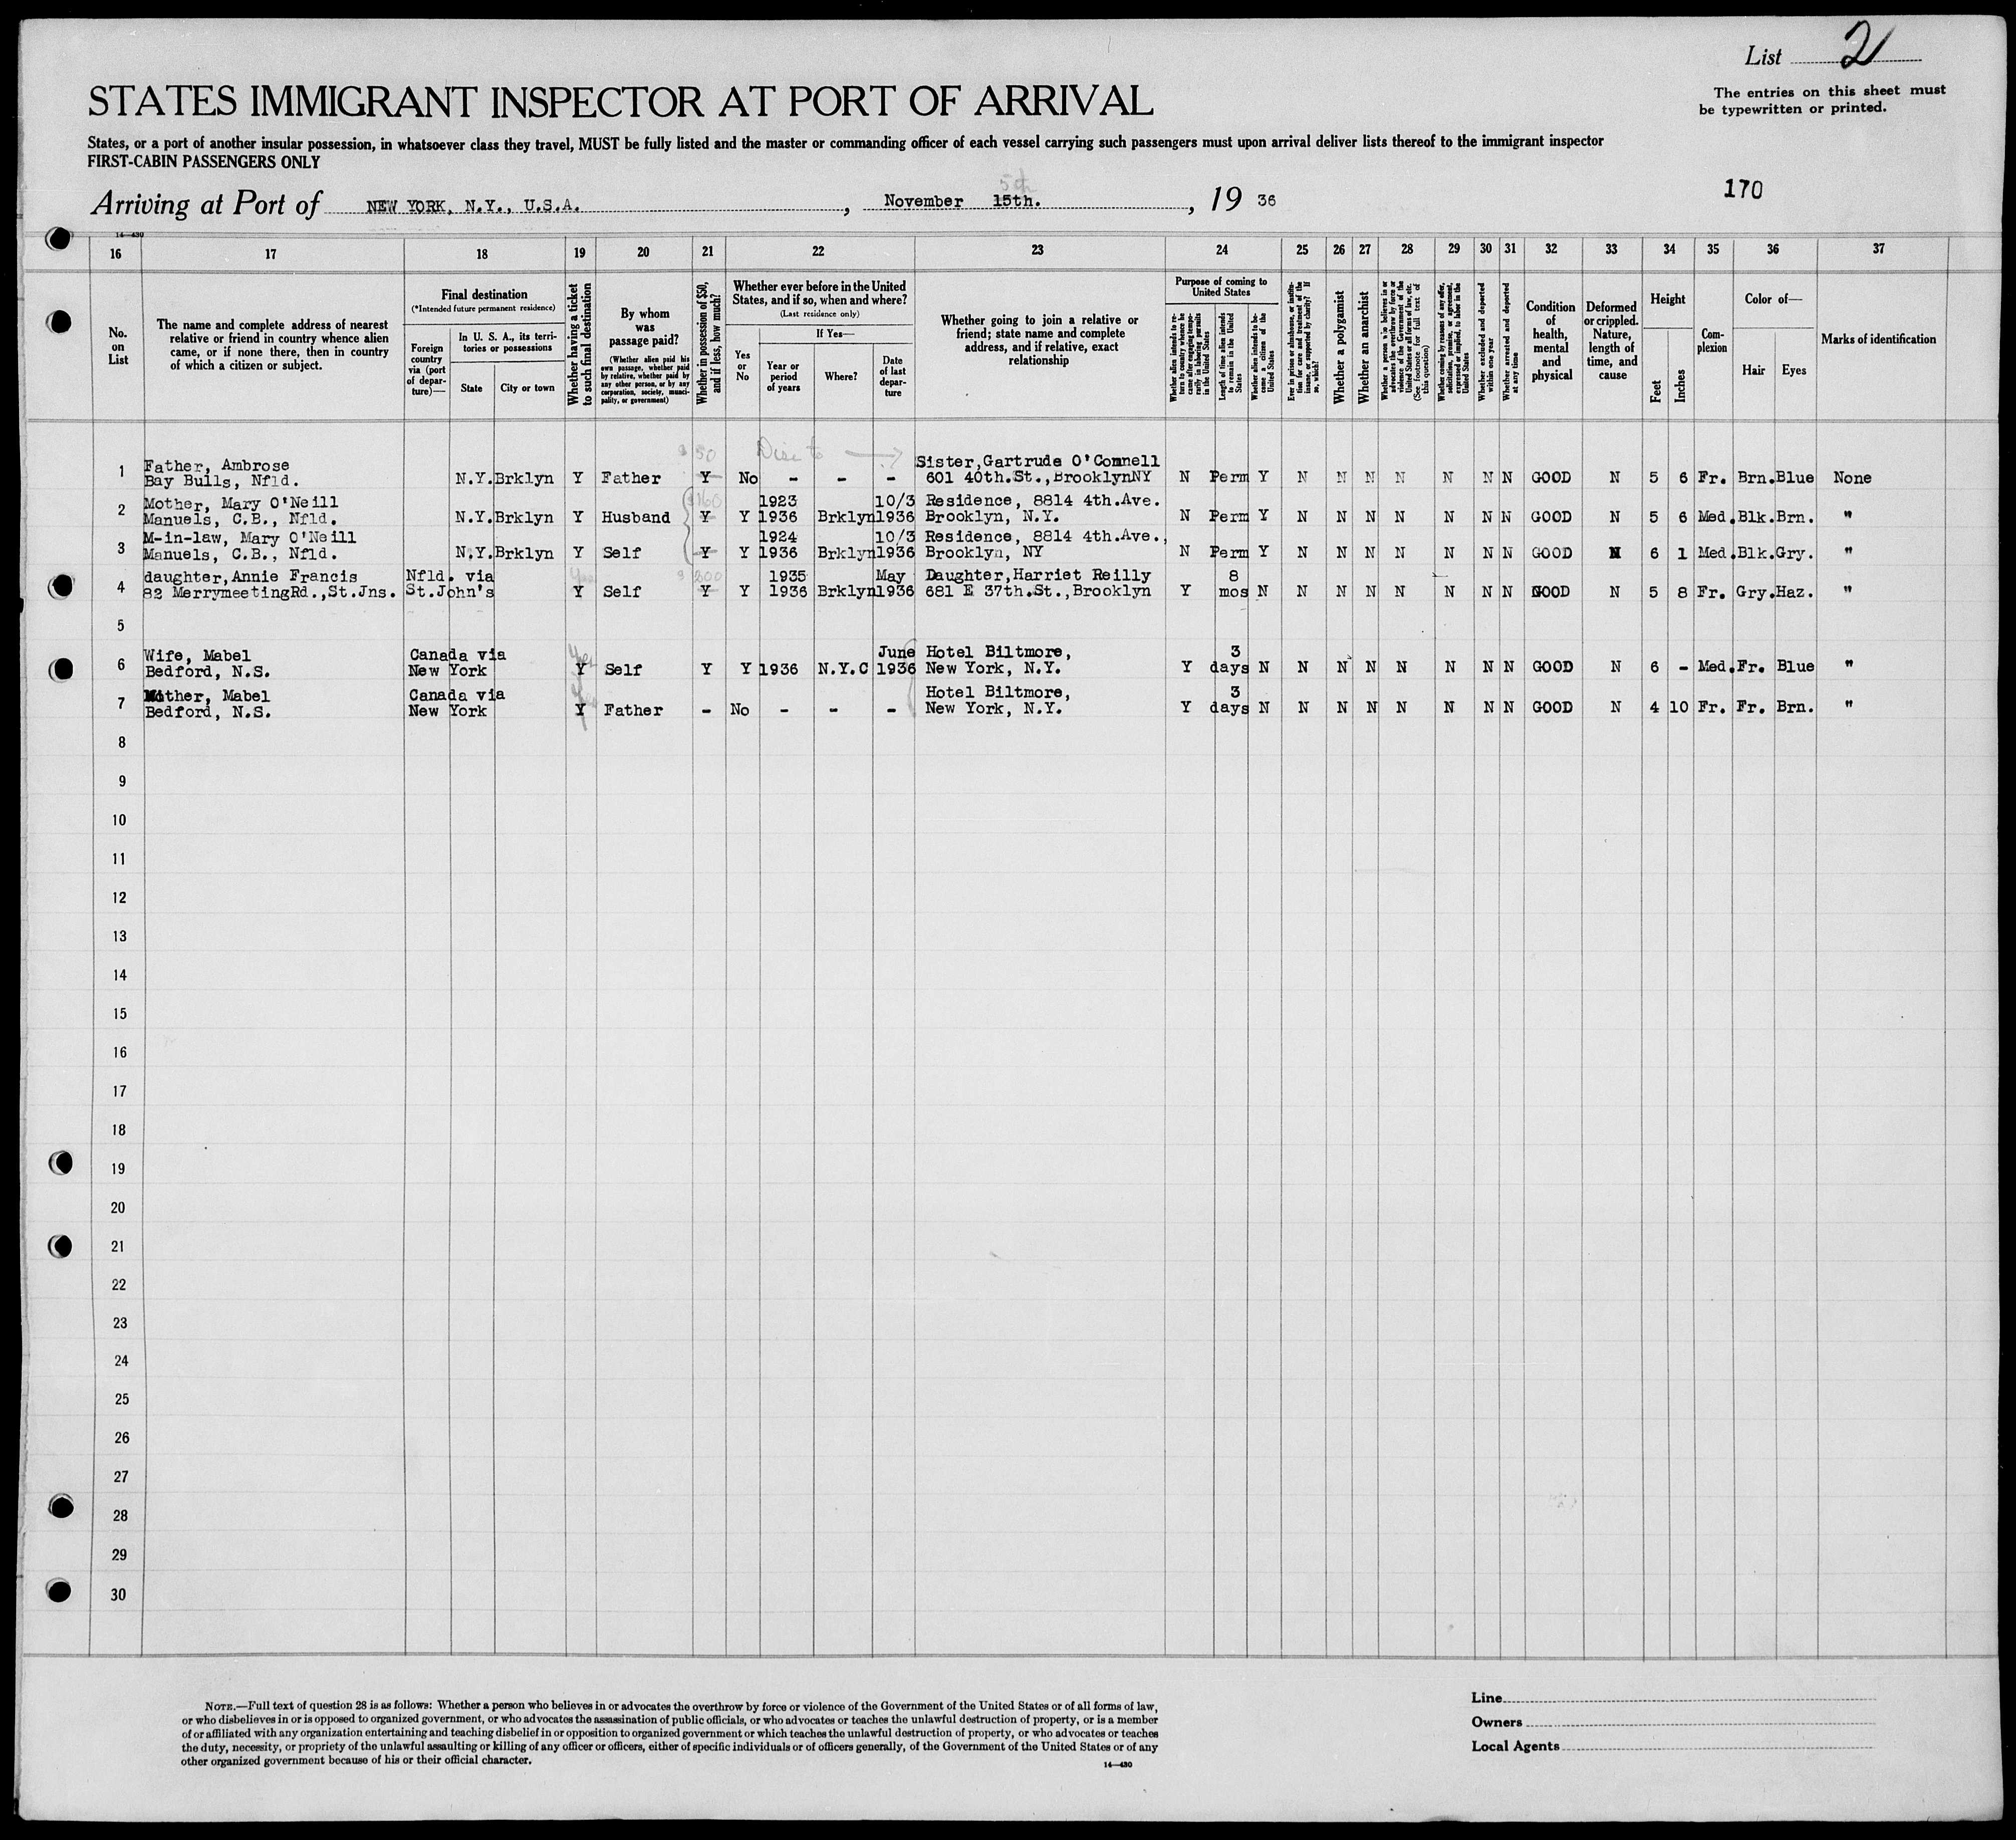 List 2
The entries on this sheet must
be typewritten or printed.
STATES IMMIGRANT INSPECTOR AT PORT OF ARRIVAL
States, or a port of another insular possession, in whatsoever class they travel, MUST be fully listed and the master or commanding officer of each vessel carrying such passengers must upon arrival deliver lists thereof to the immigrant inspector
FIRST-CABIN PASSENGERS ONLY
5th
170
Arriving at Port of NEW YORK, N.Y., U.S.A. , November 15th. , 19 36
14—430
16 17 18 19 20 21 22 23 24 25 26 27 28 29 30 31 32 33 34 35 36 37
No. on List
The name and complete address of nearest relative or friend in country whence alien came, or if none there, then in country of which a citizen or subject.
Final destination
(*Intended future permanent residence)
Foreign country via (port of departure)—
In U. S. A., its territories or possessions
State
City or town
Whether having a ticket to such final destination
By whom was passage paid?
(Whether alien paid his own passage, whether paid by relative, whether paid by any other person, or by any corporation, society, municipality, or government)
Whether in possession of $50, and if less, how much?
Whether ever before in the United States, and if so, when and where?
(Last residence only)
Yes or No
If Yes—
Year or period of years
Where?
Date of last departure
Whether going to join a relative or friend; state name and complete address, and if relative, exact relationship
Purpose of coming to United States
Whether alien intends to return to country whence he came after engaging temporarily in laboring pursuits in the United States
Length of time alien intends to remain in the United States
Whether alien intends to become a citizen of the United States
Ever in prison or almshouse, or institution for care and treatment of the insane, or supported by charity? If so, which?
Whether a polygamist
Whether an anarchist
Whether a person who believes in or advocates the overthrow by force or violence of the Government of the United States or all forms of law, etc. (See footnote for full text of this question)
Whether coming by reasons of any offer, solicitation, promise, or agreement, expressed or implied, to labor in the United States
Whether excluded and deported within one year
Whether arrested and deported at any time
Condition of health, mental and physical
Deformed or crippled. Nature, length of time, and cause
Height
Feet
Inches
Complexion
Color of—
Hair
Eyes
Marks of identification
$ 50
Father, Ambrose Sister,Gartrude O'Connell
1 Bay Bulls, Nfld. N.Y. Brklyn Y Father Y No - - - 601 40th.St.,BrooklynNY N Perm Y N N N N N N N GOOD N 5 6 Fr. Brn. Blue None
Mother, Mary O'Neill $160 1923 10/3 Residence, 8814 4th.Ave.
2 Manuels, C.B., Nfld. N.Y. Brklyn Y Husband Y Y 1936 Brklyn 1936 Brooklyn, N.Y. N Perm Y N N N N N N N GOOD N 5 6 Med. Blk. Brn. "
M-in-law, Mary O'Neill 1924 10/3 Residence, 8814 4th.Ave.,
3 Manuels, C.B., Nfld. N.Y. Brklyn Y Self Y Y 1936 Brklyn 1936 Brooklyn, NY N Perm Y N N N N N N N GOOD N 6 1 Med. Blk. Gry. "
daughter,Annie Francis Nfld. via $ 200 1935 May Daughter,Harriet Reilly 8
4 82 MerrymeetingRd.,St.Jns. St.John's Y Self Y Y 1936 Brklyn 1936 681 E 37th.St.,Brooklyn Y mos N N N N N N N N GOOD N 5 8 Fr. Gry. Haz. "
5
Wife, Mabel Canada via June Hotel Biltmore, 3
6 Bedford, N.S. New York Y Self Y Y 1936 N.Y.C 1936 New York, N.Y. Y days N N N N N N N N GOOD N 6 - Med. Fr. Blue "
Mither, Mabel Canada via Hotel Biltmore, 3
7 Bedford, N.S. New York Y Father - No - - - New York, N.Y. Y days N N N N N N N N GOOD N 4 10 Fr. Fr. Brn. "
8
9
10
11
12
13
14
15
16
17
18
19
20
21
22
23
24
25
26
27
28
29
30
NOTE.—Full text of question 28 is as follows: Whether a person who believes in or advocates the overthrow by force or violence of the Government of the United States or of all forms of law,
or who disbelieves in or is opposed to organized government, or who advocates the assassination of public officials, or who advocates or teaches the unlawful destruction of property, or is a member
of or affiliated with any organization entertaining and teaching disbelief in or opposition to organized government or which teaches the unlawful destruction of property, or who advocates or teaches
the duty, necessity, or propriety of the unlawful assaulting or killing of any officer or officers, either of specific individuals or of officers generally, of the Government of the United States or of any
other organized government because of his or their official character.
14—430
Line
Owners
Local Agents